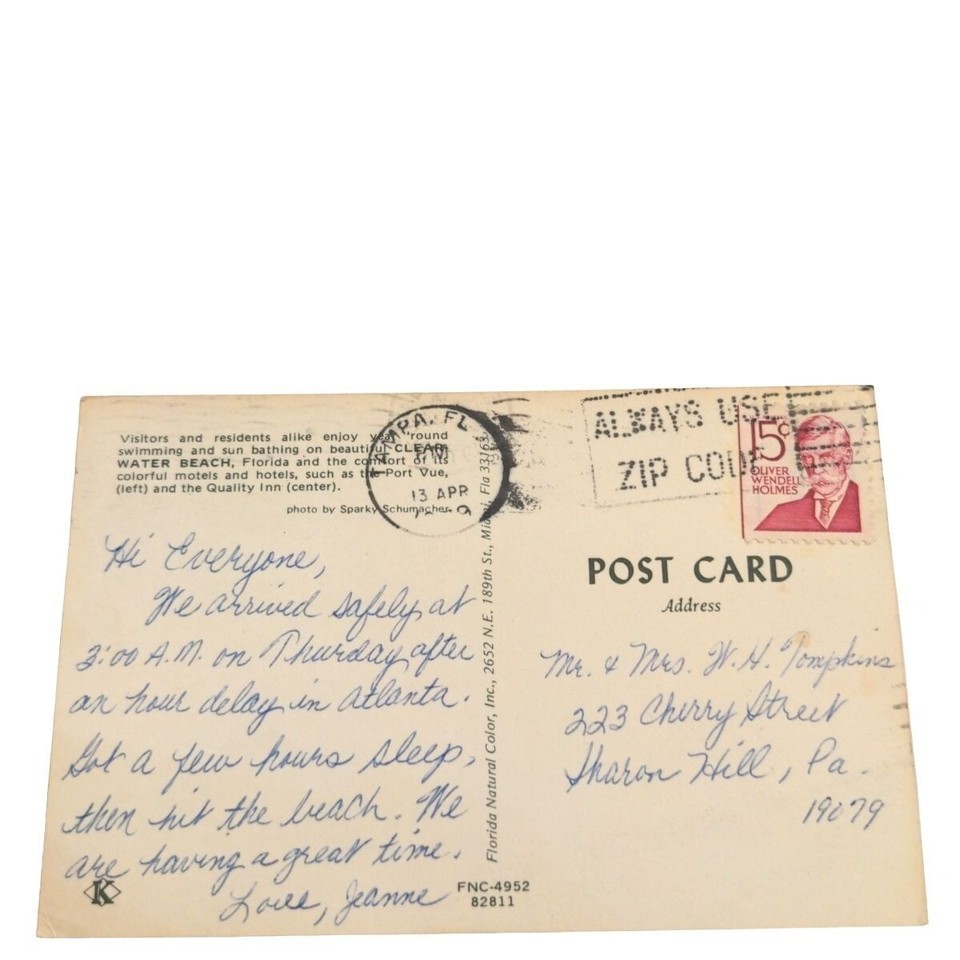 Visitors and residents alike enjoy year 'round
swimming and sun bathing on beautiful CLEAR-
WATER BEACH, Florida and the comfort of its
colorful motels and hotels, such as the Port Vue,
(left) and the Quality Inn (center).
photo by Sparky Schumacher
TAMPA, FL
13 APR
ALWAYS USE
ZIP CODE
15c
OLIVER
WENDELL
HOLMES
Hi Everyone,
We arrived safely at
3:00 A.M. on Thursday after
an hour delay in Atlanta.
Got a few hours sleep,
then hit the beach. We
are having a great time.
Love, Jeanne
K
Florida Natural Color, Inc., 2652 N.E. 189th St., Miami, Fla 33163
FNC-4952
82811
POST CARD
Address
Mr. & Mrs. W. H. Tompkins
223 Cherry Street
Sharon Hill, Pa.
19079